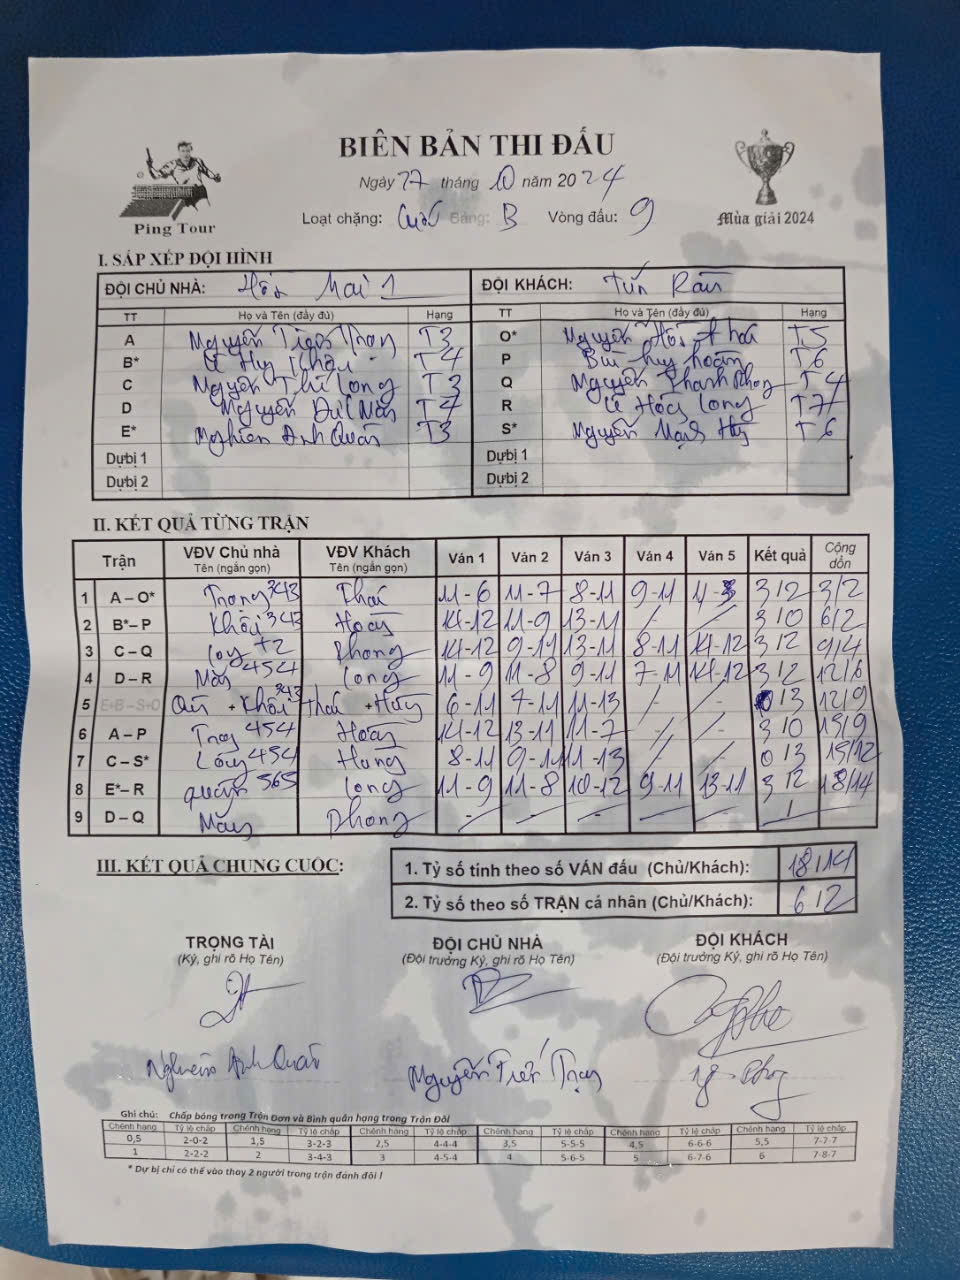 BIÊN BẢN THI ĐẤU
Ngày 27 tháng 10 năm 2024
Ping Tour
Loạt chặng: Bảng: B Vòng đấu: 9
Mùa giải 2024
I. SẮP XẾP ĐỘI HÌNH
ĐỘI CHỦ NHÀ: Mai 1 ĐỘI KHÁCH: Tuấn
TT Họ và Tên (đầy đủ) Hạng TT Họ và Tên (đầy đủ) Hạng
A Nguyễn T3 O* Nguyễn T5
B* Lê Huy T4 P Bùi huy hoàng T6
C Nguyễn Long T3 Q Nguyễn Thanh Phong T4
D Nguyễn Đức T4 R Lê Long T7
E* Nghiêm Anh Quân T3 S* Nguyễn Mạnh T6
Dự bị 1 Dự bị 1
Dự bị 2 Dự bị 2
II. KẾT QUẢ TỪNG TRẬN
Trận VĐV Chủ nhà Tên (ngắn gọn) VĐV Khách Tên (ngắn gọn) Ván 1 Ván 2 Ván 3 Ván 4 Ván 5 Kết quả Cộng dồn
1 A – O* Trọng 343 Thái 11-6 11-7 8-11 9-11 3/2 3/2
2 B* – P Khôi 343 Hoàng 14-12 11-9 13-11 / / 3/0 6/2
3 C – Q Long +2 Phong 14-12 9-11 13-11 8-11 14-12 3/2 9/4
4 D – R 454 Long 11-9 11-8 9-11 7-11 14-12 3/2 12/6
5 E+B – S+O + Khôi 343 Thái + 6-11 7-11 11-13 / / 0/3 12/9
6 A – P Trọng 454 Hoàng 14-12 13-11 11-7 / / 3/0 15/9
7 C – S* Long 454 8-11 9-11 11-13 / / 0/3 15/12
8 E* – R Quân 565 Long 11-9 11-8 10-12 9-11 13-11 3/2 18/14
9 D – Q Phong - - - - - /
III. KẾT QUẢ CHUNG CUỘC:
1. Tỷ số tính theo số VÁN đấu (Chủ/Khách): 18/14
2. Tỷ số theo số TRẬN cá nhân (Chủ/Khách): 6/2
TRỌNG TÀI ĐỘI CHỦ NHÀ ĐỘI KHÁCH
(Ký, ghi rõ Họ Tên) (Đội trưởng Ký, ghi rõ Họ Tên) (Đội trưởng Ký, ghi rõ Họ Tên)
Nghiêm Anh Quân Nguyễn Trọng
Ghi chú: Chấp bóng trong Trận Đơn và Bình quân hạng trong Trận Đôi
Chênh hạng Tỷ lệ chấp Chênh hạng Tỷ lệ chấp Chênh hạng Tỷ lệ chấp Chênh hạng Tỷ lệ chấp Chênh hạng Tỷ lệ chấp Chênh hạng Tỷ lệ chấp
0,5 2-0-2 1,5 3-2-3 2,5 4-4-4 3,5 5-5-5 4,5 6-6-6 5,5 7-7-7
1 2-2-2 2 3-4-3 3 4-5-4 4 5-6-5 5 6-7-6 6 7-8-7
* Dự bị chỉ có thể vào thay 2 người trong trận đánh đôi !